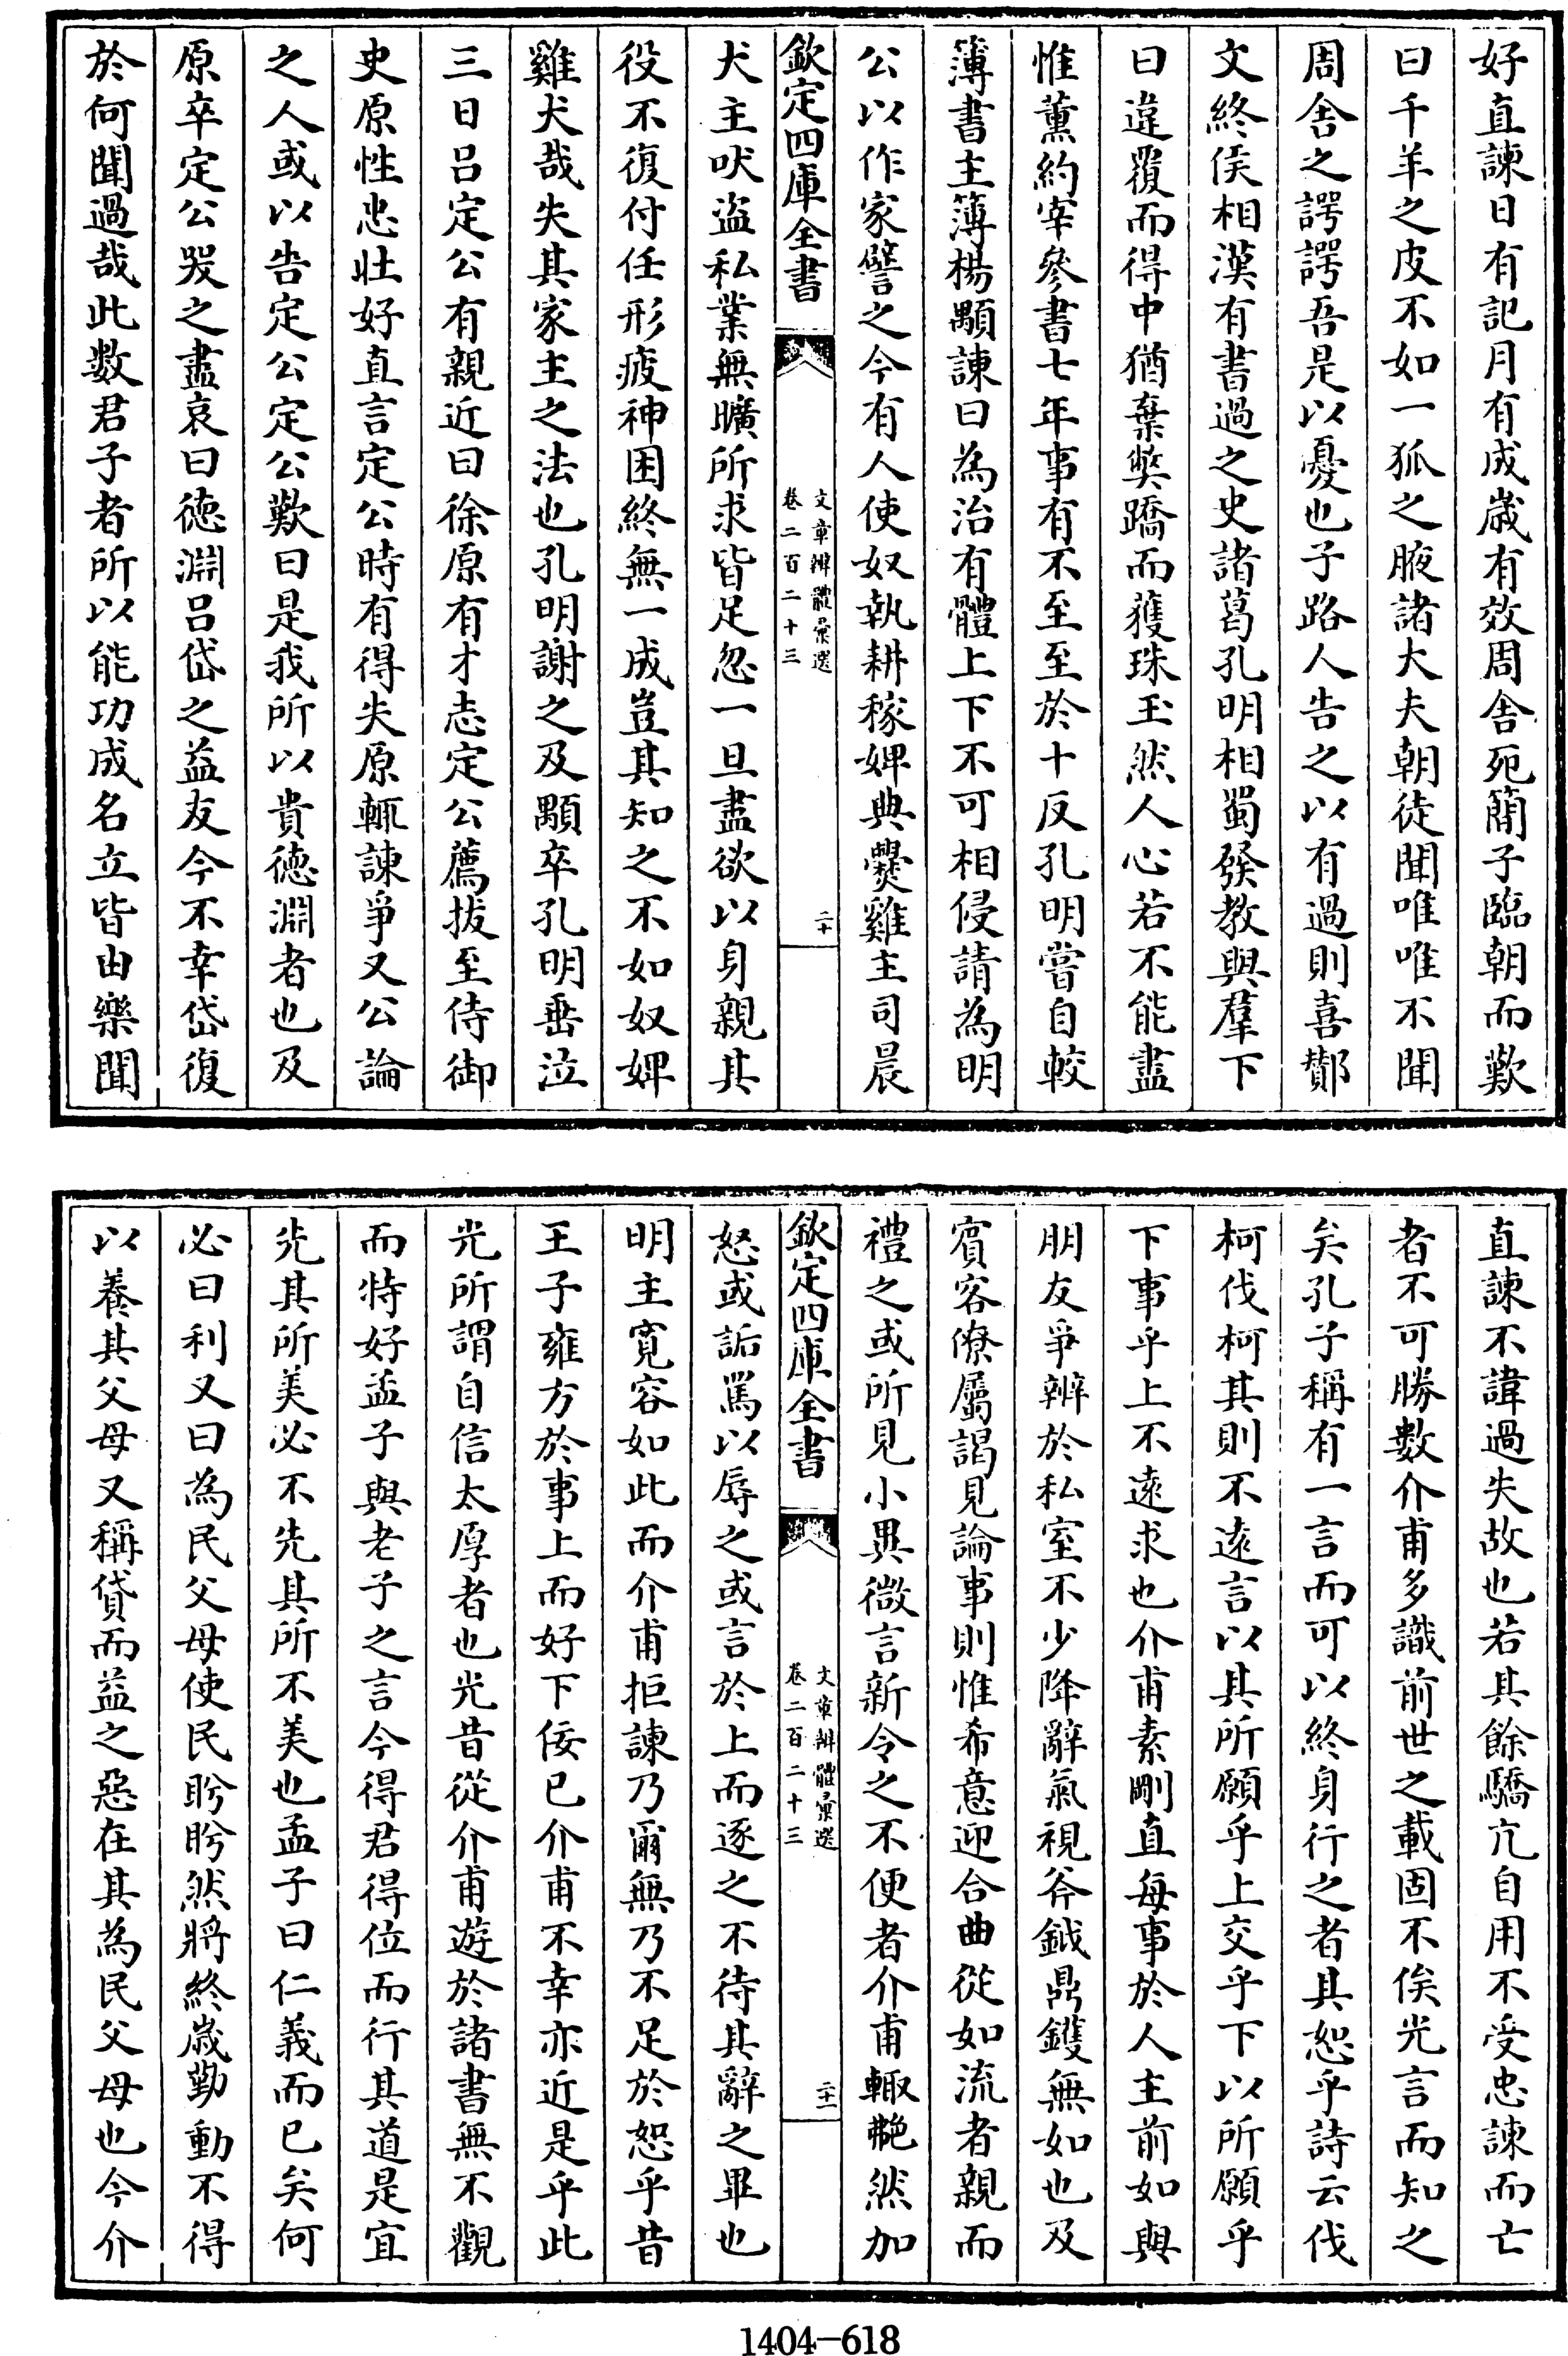 好直諫日有記月有成歲有效周舍死簡子臨朝而歎
曰千羊之皮不如一狐之腋諸大夫朝徒聞唯唯不聞
周舍之諤諤吾是以憂也子路人告之以有過則喜酇
文終侯相漢有書過之史諸葛孔明相蜀發教與羣下
曰違覆而得中猶棄獘蹻而獲珠玉然人心若不能盡
惟董幼宰參書七年事有不至至於十反孔明嘗自較
簿書主簿楊顒諫曰為治有體上下不可相侵請為明
公以作家譬之今有人使奴執耕稼婢典爨雞主司晨
欽定四庫全書
文章辨體彙選
卷二百二十三
二十
犬主吠盜私業無曠所求皆足忽一旦盡欲以身親其
役不復付任形疲神困終無一成豈其知之不如奴婢
雞犬哉失其家主之法也孔明謝之及顒卒孔明垂泣
三日吕定公有親近曰徐原有才志定公薦拔至侍御
史原性忠壯好直言定公時有得失原輒諫爭又公論
之人或以告定公定公歎曰是我所以貴德淵者也及
原卒定公哭之盡哀曰德淵吕岱之益友今不幸岱復
於何聞過哉此數君子者所以能功成名立皆由樂聞
直諫不諱過失故也若其餘驕亢自用不受忠諫而亡
者不可勝數介甫多識前世之載固不俟光言而知之
矣孔子稱有一言而可以終身行之者其恕乎詩云伐
柯伐柯其則不逺言以其所願乎上交乎下以所願乎
下事乎上不逺求也介甫素剛直每事於人主前如與
朋友爭辨於私室不少降辭氣視斧鉞鼎鑊無如也及
賓客僚屬謁見論事則惟希意迎合曲從如流者親而
禮之或所見小異微言新令之不便者介甫輒艴然加
欽定四庫全書
文章辨體彙選
卷二百二十三
二十一
怒或詬罵以辱之或言於上而逐之不待其辭之畢也
明主寛容如此而介甫拒諫乃爾無乃不足於恕乎昔
王子雍方於事上而好下佞已介甫不幸亦近是乎此
光所謂自信太厚者也光昔從介甫遊於諸書無不觀
而特好孟子與老子之言今得君得位而行其道是宜
先其所美必不先其所不美也孟子曰仁義而已矣何
必曰利又曰為民父母使民盻盻然將終歲勤動不得
以養其父母又稱貸而益之惡在其為民父母也今介
1404-618